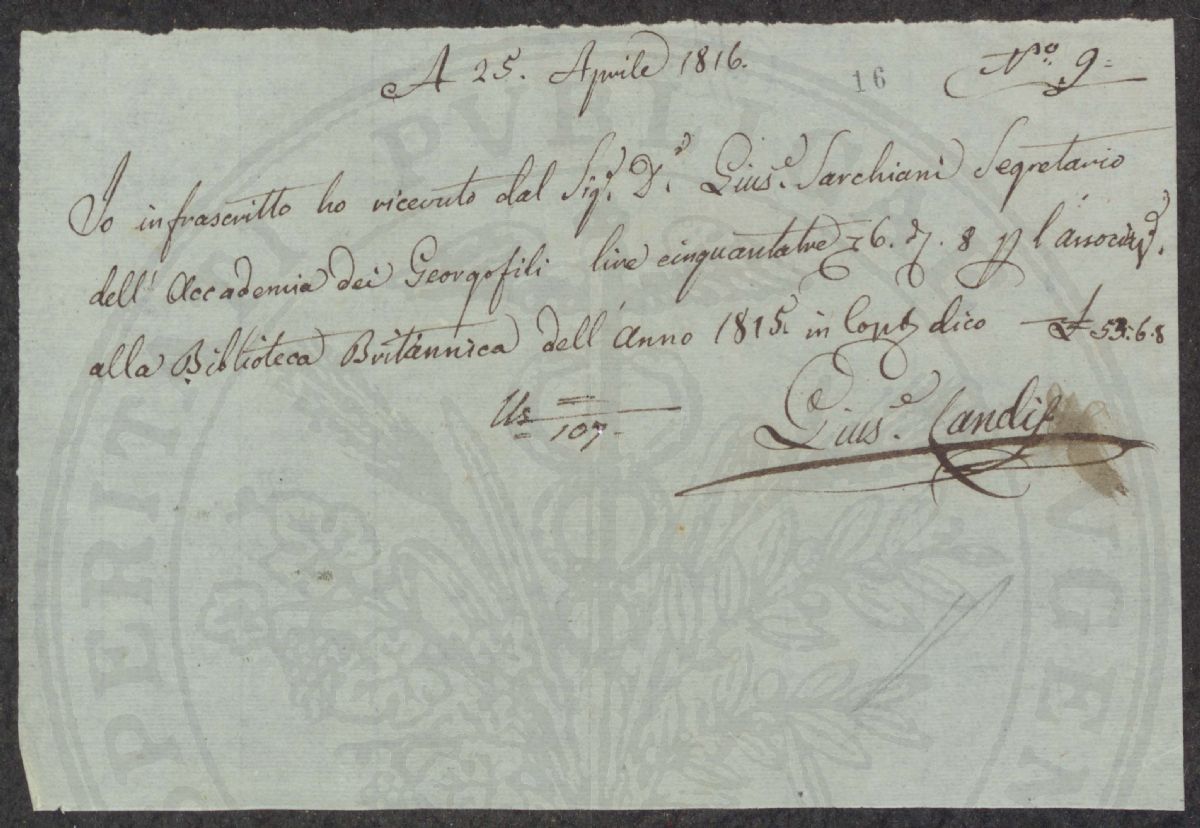 A 25. Aprile 1816.
16
No. 9=
Io infrascritto ho ricevuto dal Sigr. Dr. Giuse. Sarchiani Segretario
dell'Accademia dei Georgofili lire cinquantatre 6. 8 l'associaz.
alla Biblioteca Britannica dell'Anno 1815. in dico £ 53.6.8
107
Giuse. Landi
PERITATI PVBLICAE